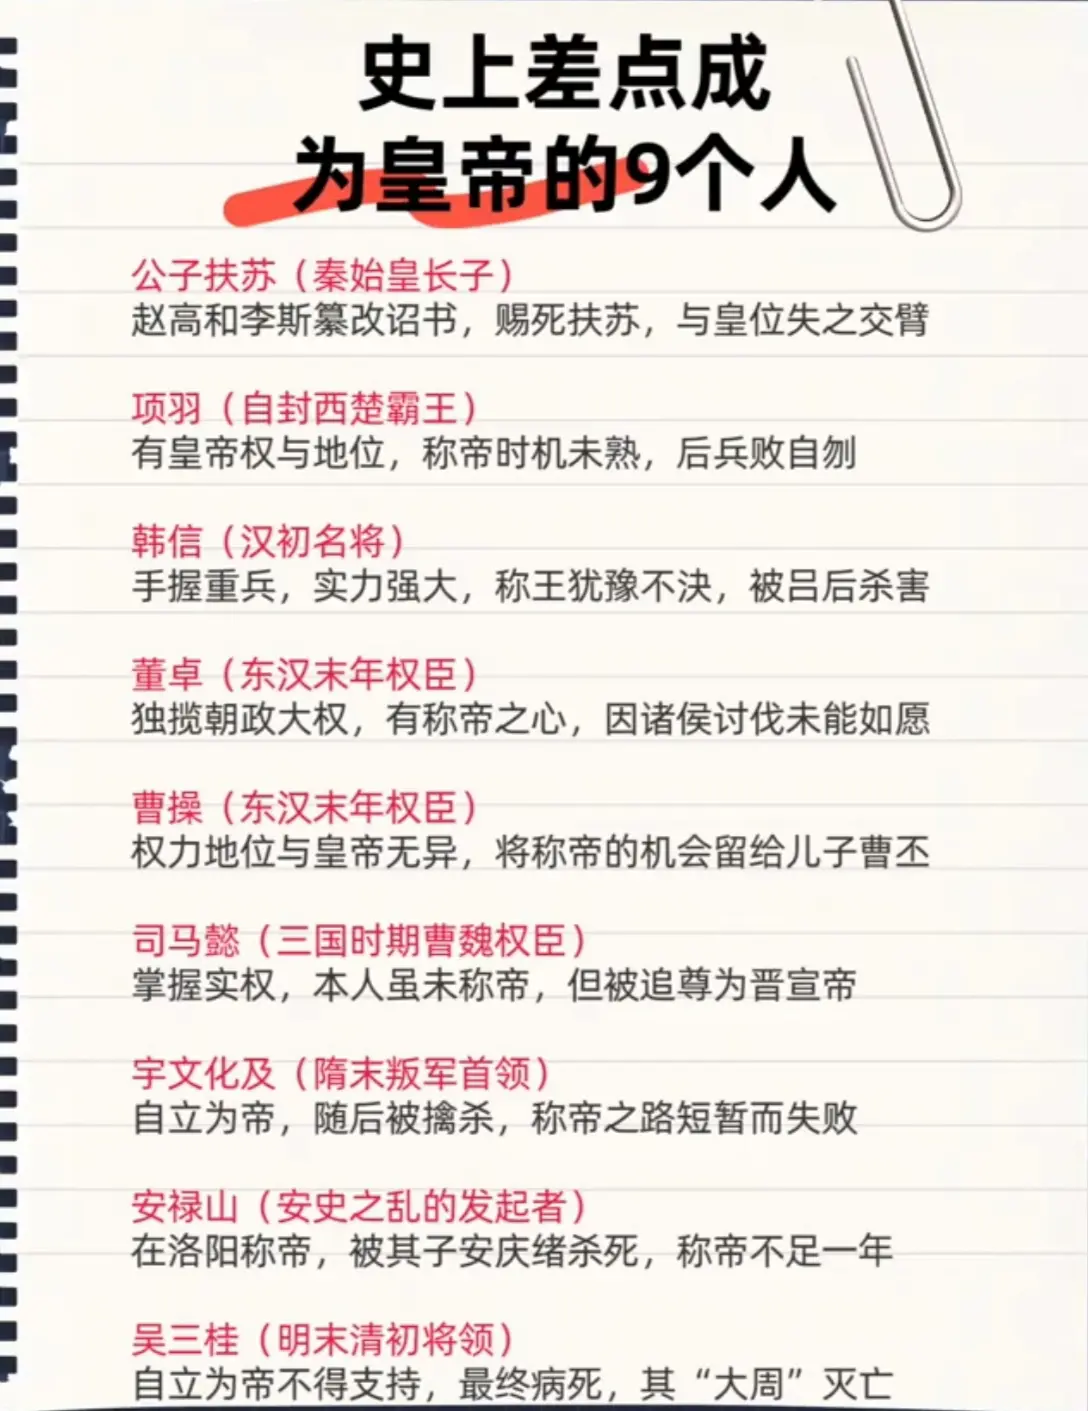 史上差点成
为皇帝的9个人
公子扶苏（秦始皇长子）
赵高和李斯纂改诏书，赐死扶苏，与皇位失之交臂
项羽（自封西楚霸王）
有皇帝权与地位，称帝时机未熟，后兵败自刎
韩信（汉初名将）
手握重兵，实力强大，称王犹豫不決，被吕后杀害
董卓（东汉末年权臣）
独揽朝政大权，有称帝之心，因诸侯讨伐未能如愿
曹操（东汉末年权臣）
权力地位与皇帝无异，将称帝的机会留给儿子曹丕
司马懿（三国时期曹魏权臣）
掌握实权，本人虽未称帝，但被追尊为晋宣帝
宇文化及（隋末叛军首领）
自立为帝，随后被擒杀，称帝之路短暂而失败
安禄山（安史之乱的发起者）
在洛阳称帝，被其子安庆绪杀死，称帝不足一年
吴三桂（明末清初将领）
自立为帝不得支持，最终病死，其“大周”灭亡